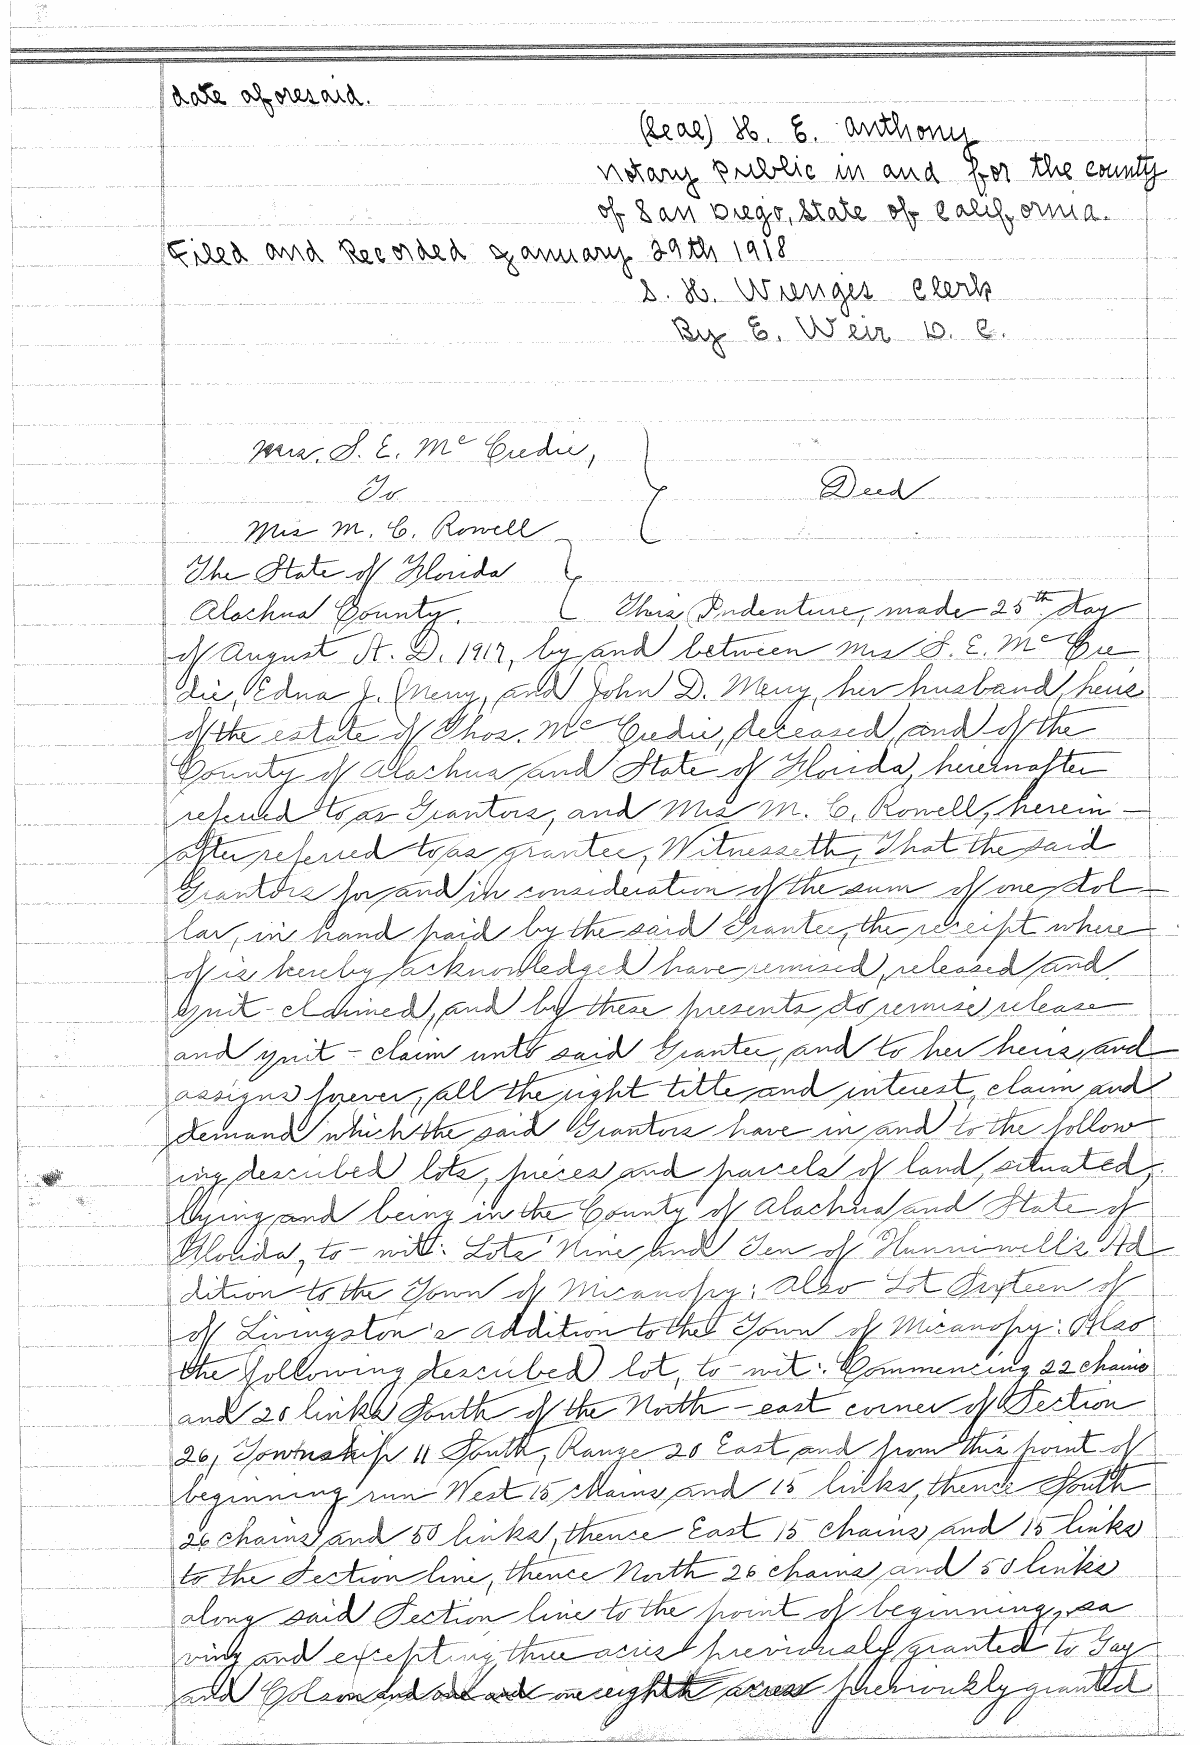 date aforesaid.
(Seal) H. E. Anthony
Notary Public in and for the county
of San Diego, State of California.
Filed and Recorded January 29th 1918
S. H. Wienges Clerk
By E. Weir D. C.
Mrs. S. E. McCredie,
To
Deed
Mrs M. C. Rowell
The State of Florida
Alachua County. This Indenture, made 25th day
of August A. D. 1917, by and between Mrs S. E. McCre
die, Edna J. Merry, and John D. Merry, her husband, heirs
of the estate of Thos. McCredie, deceased, and of the
County of Alachua and State of Florida, hereinafter
referred to as Grantors, and Mrs M. C. Rowell, herein-
after referred to as grantee, Witnesseth, That the said
Grantors for and in consideration of the sum of one dol-
lar, in hand paid by the said Grantee, the receipt where
of is hereby acknowledged have remised, released and
quit-claimed, and by these presents do remise release
and quit-claim unto said Grantee, and to her heirs, and
assigns forever, all the right title and interest, claim and
demand which the said Grantors have in and to the follow
ing described lots, pieces and parcels of land, situated,
lying and being in the County of Alachua and State of
Florida, to-wit: Lots Nine and Ten of Hunniwell's Ad
dition to the Town of Micanopy; Also Lot Sixteen of
of Livingston's Addition to the Town of Micanopy: Also
the following described lot, to-wit: Commencing 22 chains
and 20 links South of the North-east corner of Section
26, Township 11 South, Range 20 East and from this point of
beginning run West 15 chains and 15 links, thence South
26 chains and 50 links, thence East 15 chains and 15 links
to the Section line, thence North 26 chains and 50 links
along said Section line to the point of beginning, sa
ving and excepting three acres previously granted to Gay
and Colson and one and one eighth acres previously granted